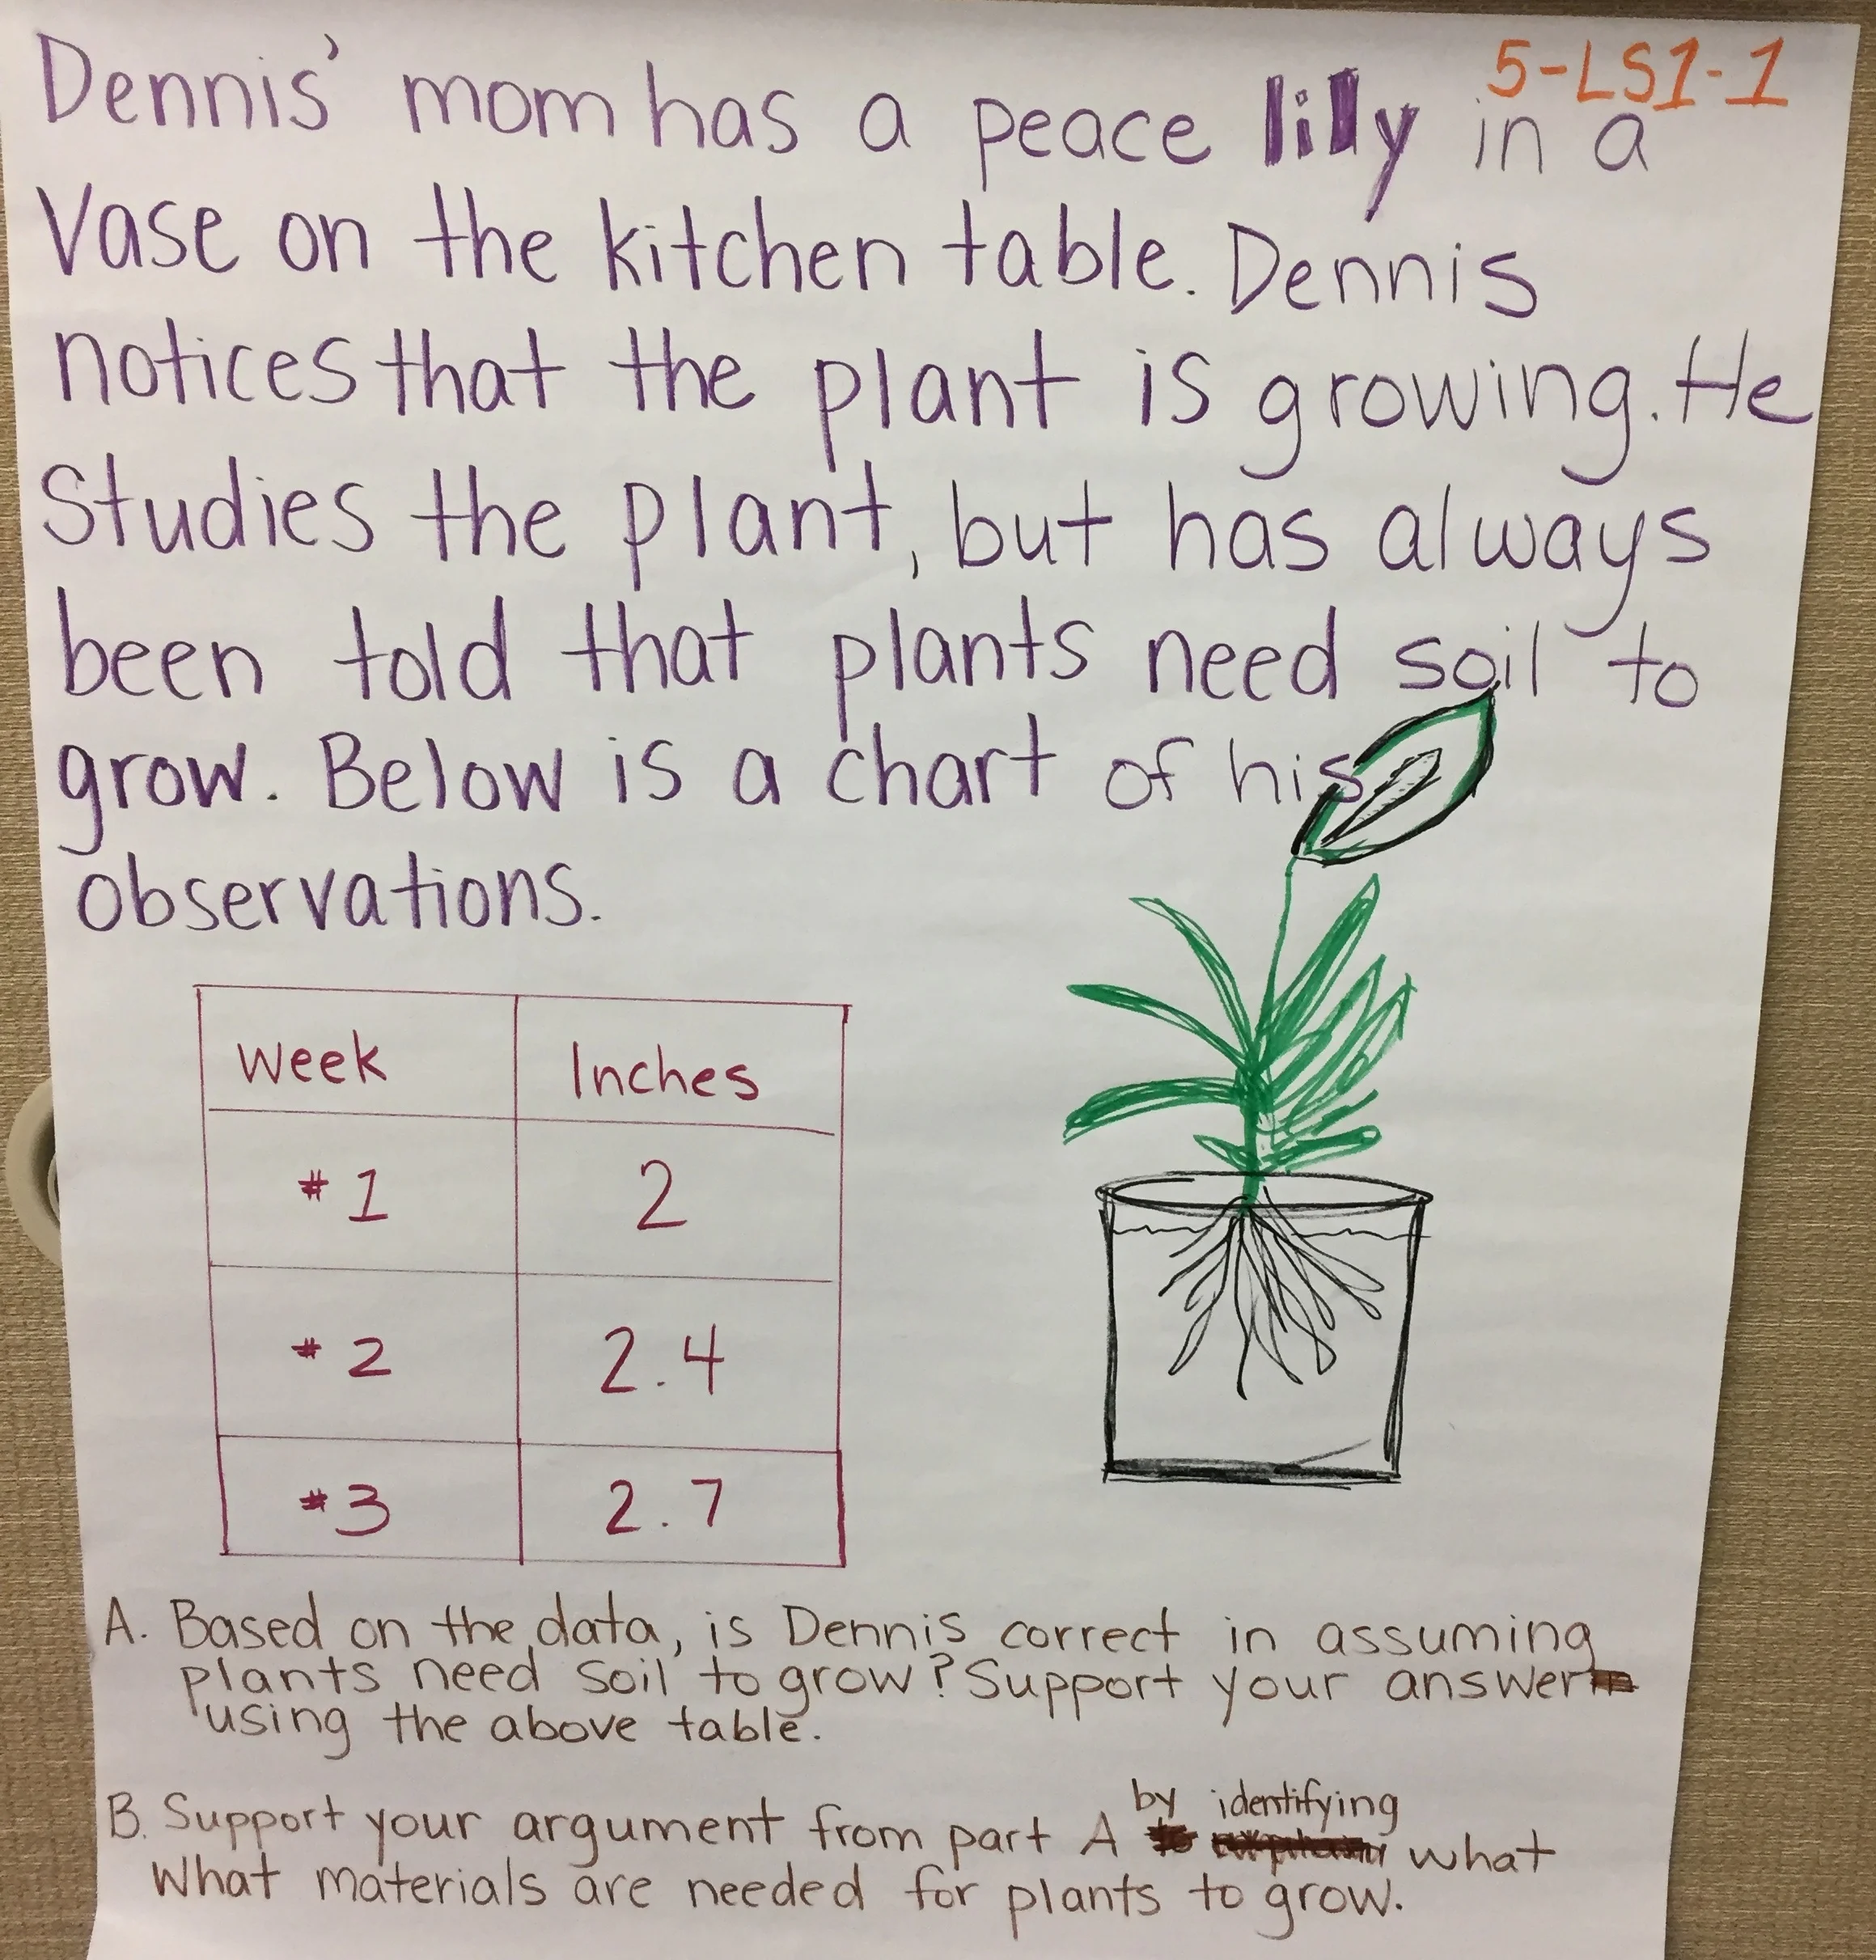 5-LS1-1
Dennis' mom has a peace lily in a
vase on the kitchen table. Dennis
notices that the plant is growing. He
studies the plant, but has always
been told that plants need soil to
grow. Below is a chart of his
observations.
Week Inches
#1 2
#2 2.4
#3 2.7
A. Based on the data, is Dennis correct in assuming
plants need soil to grow? Support your answer
using the above table.
by identifying
B. Support your argument from part A what
what materials are needed for plants to grow.